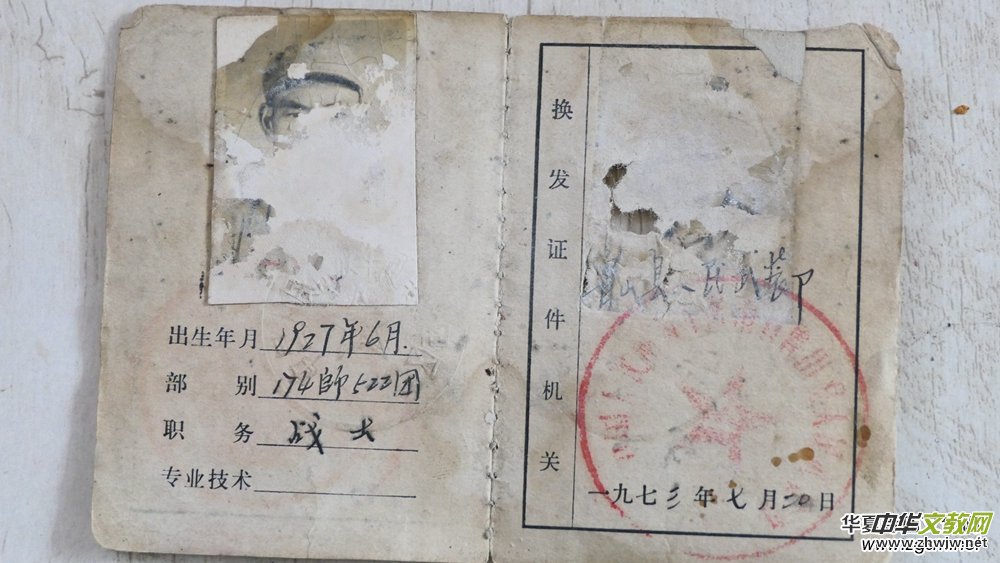 出生年月 1927年6月.
部别 174師522团
职务 战士
专业技术
换发证件机关
县人民武装部
一九七三年七月二0日
华夏中华文教网
www.zhwjw.net